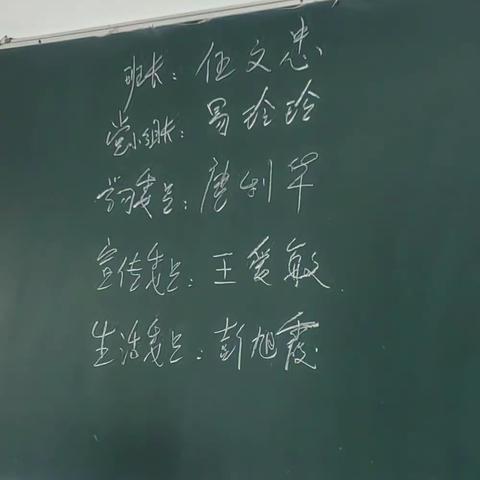 班长：伍文忠
党小组长：易玲玲
学习委员：唐利华
宣传委员：王爱敏
生活委员：彭旭霞